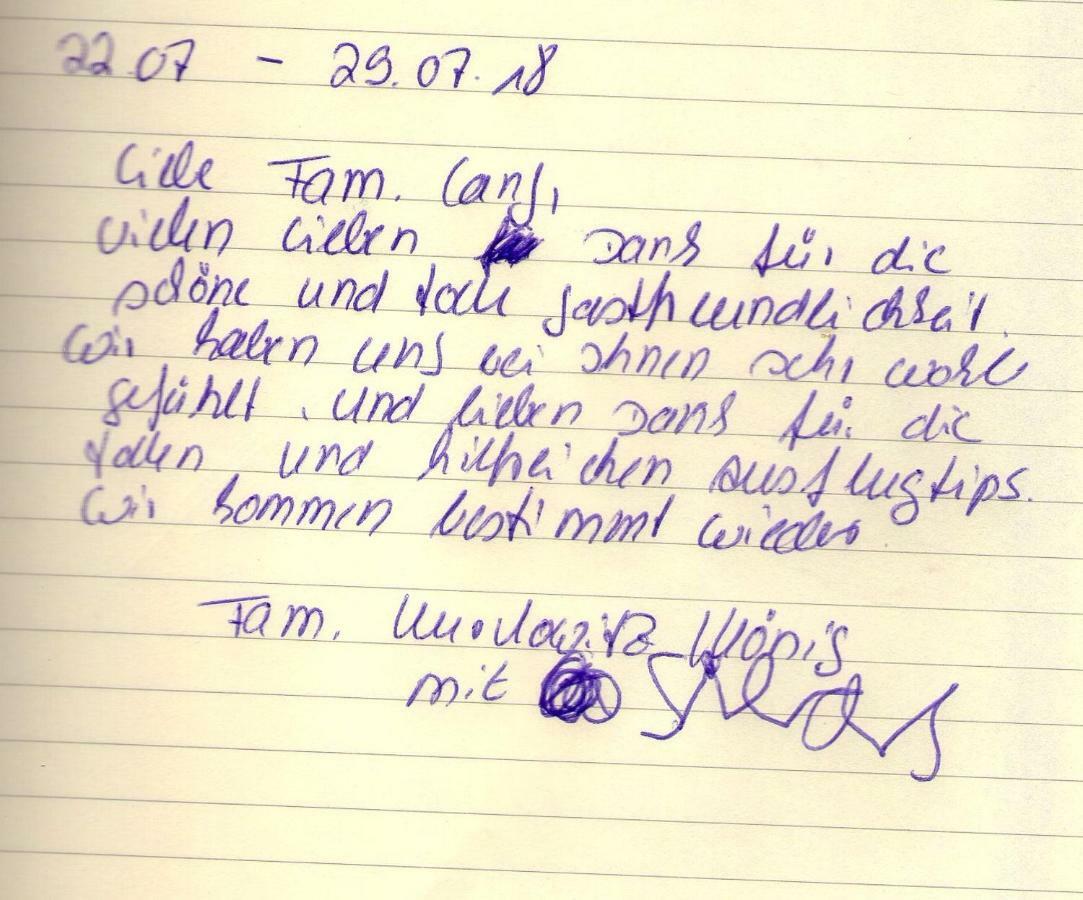 22.07 - 29.07.18
Liebe Fam. Lang,
vielen lieben Dank für die
schöne und tolle gastfreundlichkeit.
Wir haben uns bei Ihnen sehr wohl
gefühlt. und lieben Dank für die
tollen und hilfreichen Ausflugtips.
Wir kommen bestimmt wieder
Fam.
mit